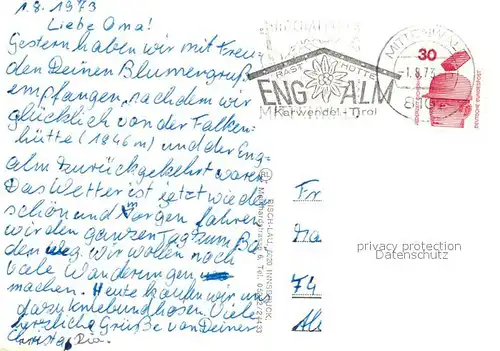 1.8.1973
Liebe Oma!
Gestern haben wir mit Freu-
den Deinen Blumengruß
empfangen, nachdem wir
glücklich von der Falken-
hütte (1846m) und der Eng-
alm zurückgekehrt waren.
Das Wetter ist jetzt wieder
schön und morgen fahren
wir den ganzen Tag zum Ba
den weg. Wir wollen noch
viele Wanderungen
machen. Heute kaufen wir uns
dazu Kniebundhosen. Viele
herzliche Grüße von Deiner
Christa Ria.
RAST HÜTTE
ENG ALM
Karwendel-Tirol
MITTENWALD
1.8.73
30
DEUTSCHE BUNDESPOST
RISCH-LAU, 6020 INNSBRUCK,
6, Tel. 05222/21433
Fr
74
privacy protection
Datenschutz